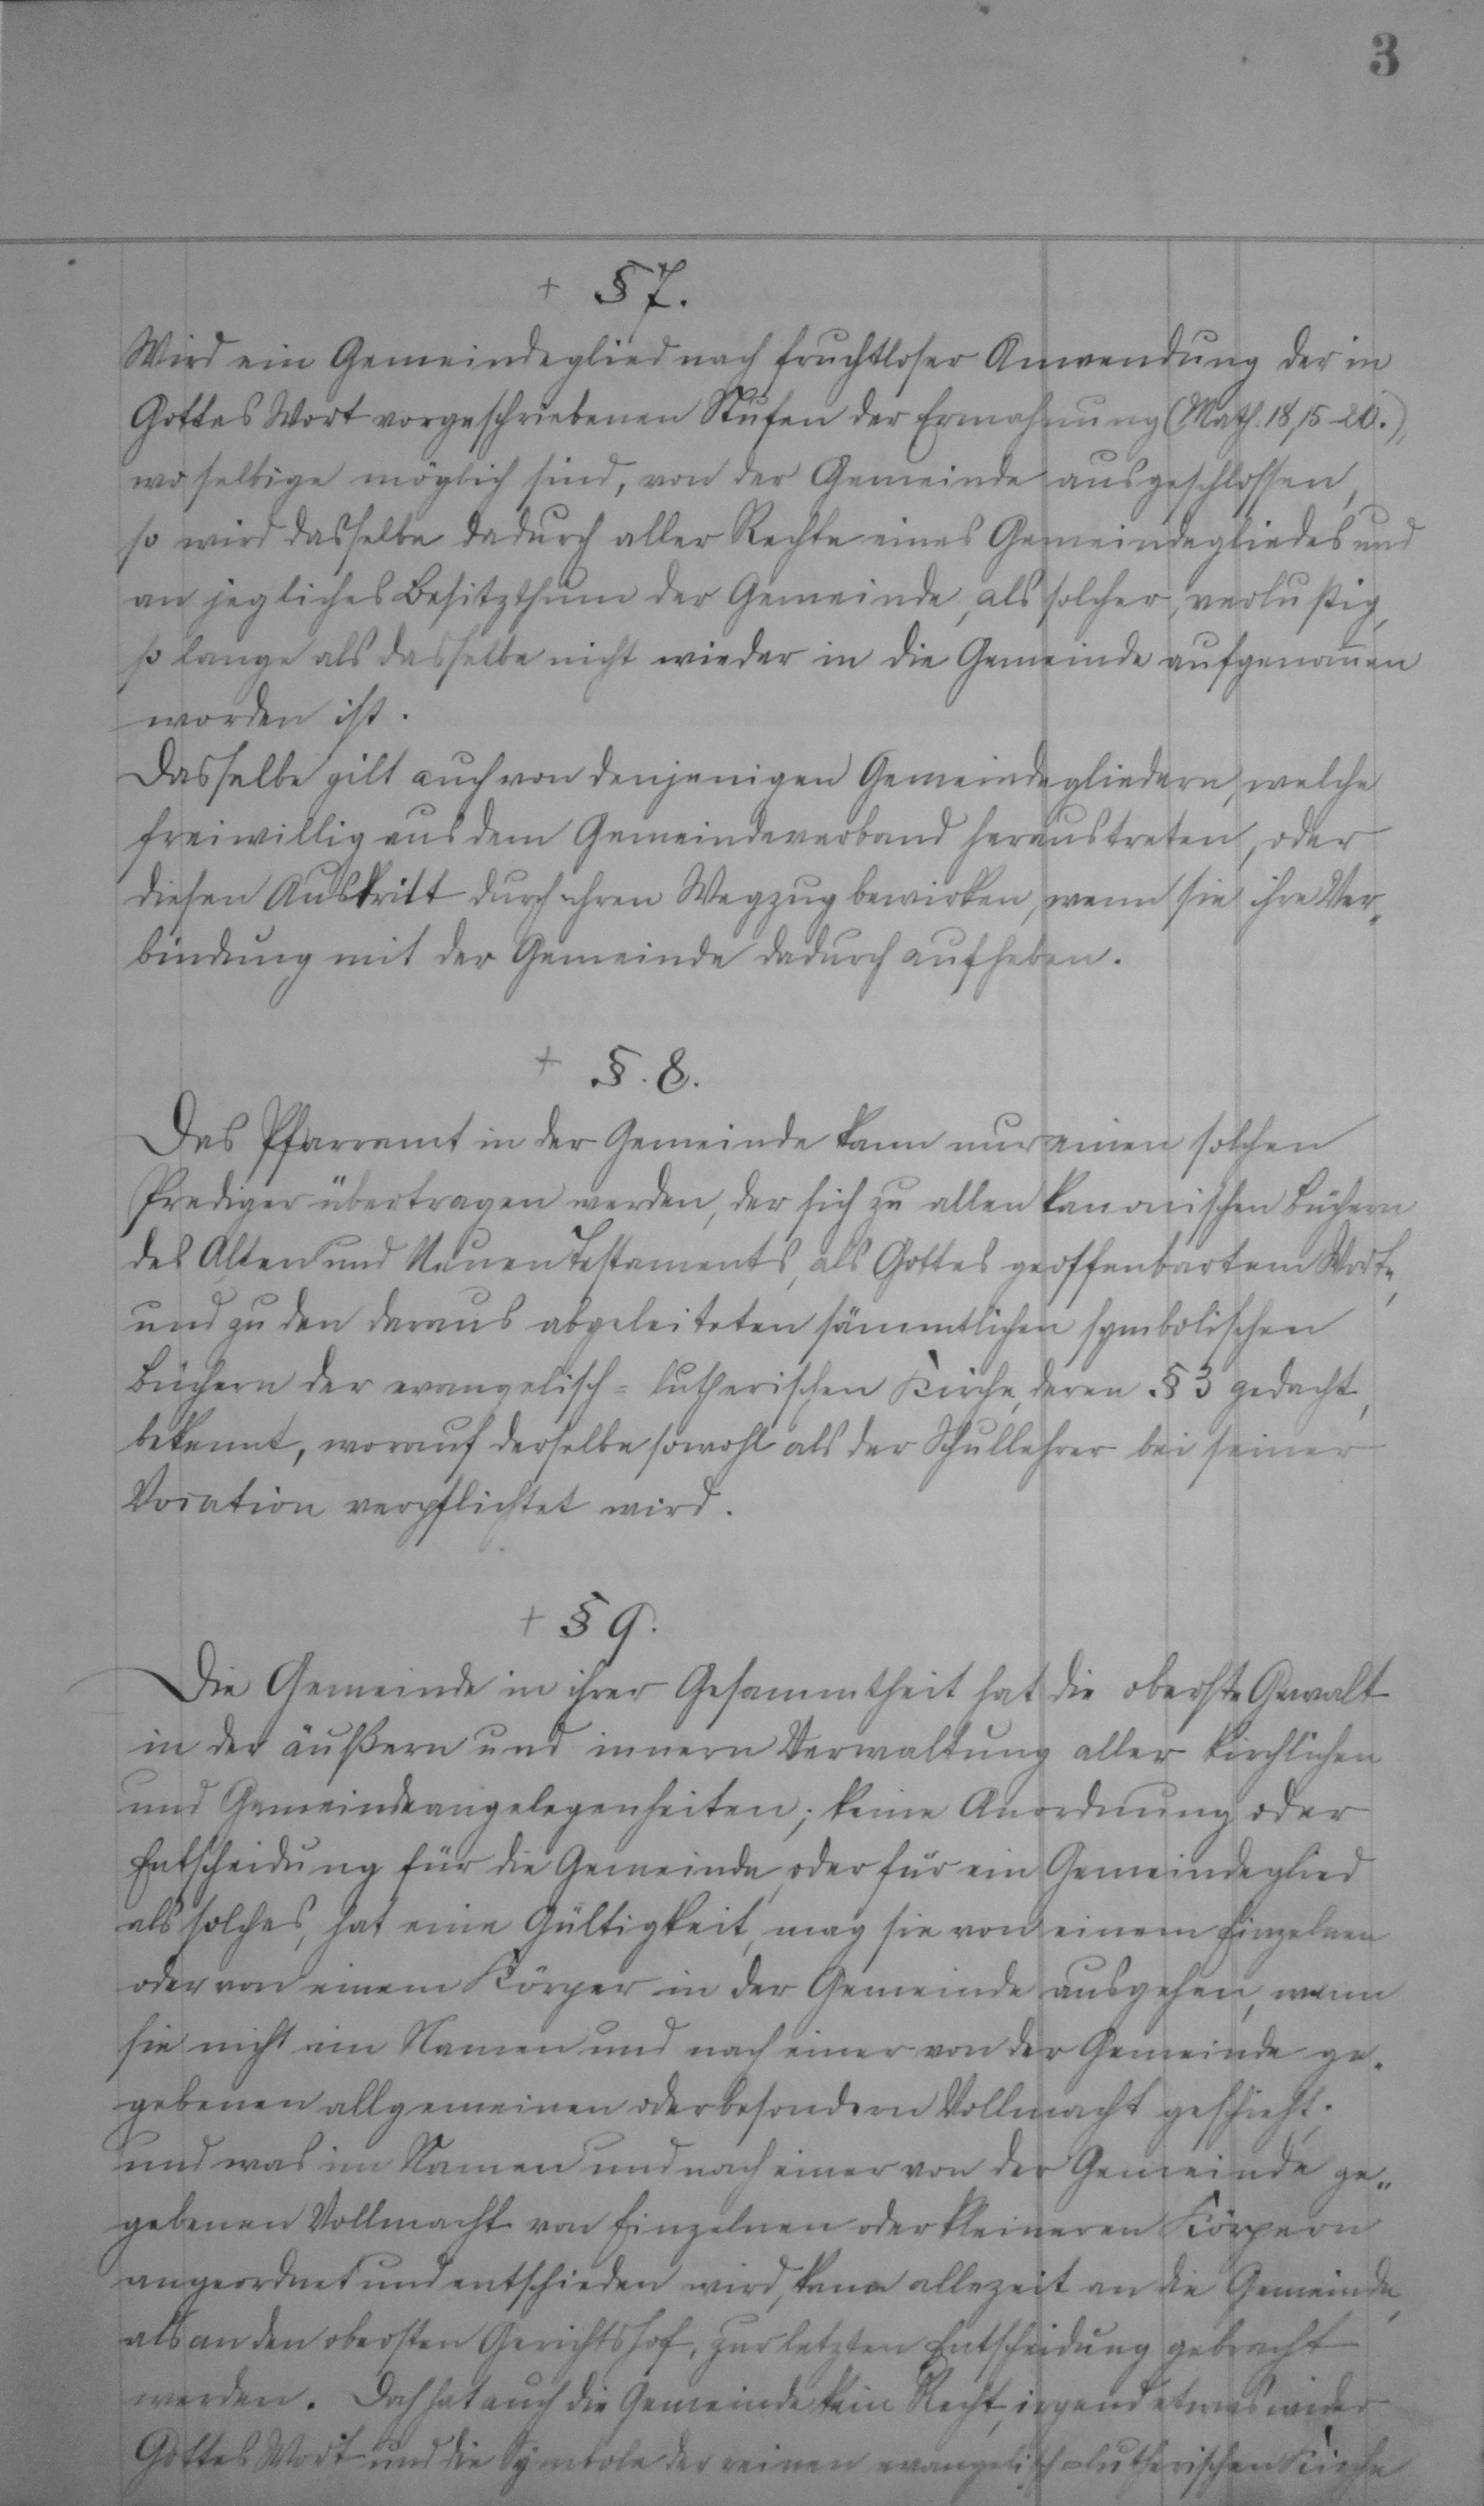 3
+ § 7.
Wird ein Gemeindeglied nach fruchtloser Anwendung der in
Gottes Wort vorgeschriebenen Stufen der Ermahnung (Math. 18, 15-20.),
wo selbige möglich sind, von der Gemeinde ausgeschlossen,
so wird dasselbe dadurch aller Rechte eines Gemeindegliedes und
an jegliches Besitzthum der Gemeinde, als solcher, verlustig,
so lange als dasselbe nicht wieder in die Gemeinde aufgenom̄en
worden ist.
Dasselbe gilt auch von denjenigen Gemeindegliedern, welche
freiwillig aus dem Gemeindeverband heraustreten, oder
diesen Austritt durch ihren Wegzug bewirken, wenn sie ihre Ver„
bindung mit der Gemeinde dadurch aufheben.
+ §. 8.
Das Pfarramt in der Gemeinde kann nur einen solchen
Prediger übertragen werden, der sich zu allen kanonischen Büchern
des Alten und Neuen Testaments, als Gottes geoffenbartem Wort,
und zu den daraus abgeleiteten sämmtlichen symbolischen
Büchern der evangelisch=lutherischen Kirche, deren § 3 gedacht,
bekennt, worauf derselbe sowohl als der Schullehrer bei seiner
Vocation verpflichtet wird.
+ § 9.
Die Gemeinde in ihrer Gesammtheit hat die oberste Gewalt
in der äußern und innern Verwaltung aller kirchlichen
und Gemeindeangelegenheiten; keine Anordnung oder
Entscheidung für die Gemeinde oder für ein Gemeindeglied
als solches, hat eine Gültigkeit, mag sie von einem Einzelnen
oder von einem Körper in der Gemeinde ausgehen, wenn
sie nicht im Namen und nach einer von der Gemeinde ge„
gebenen allgemeinen oder besondern Vollmacht geschieht;
und was im Namen und nach einer von der Gemeinde ge„
gebenen Vollmacht von Einzelnen oder kleineren Körpern
angeordnet und entschieden wird, kann allezeit an die Gemeinde,
als an den obersten Gerichtshof, zur letzten Entscheidung gebracht
werden. Doch hat auch die Gemeinde kein Recht, irgend etwas wider
Gottes Wort und die Symbole der reinen evangelisch=lutherischen Kirche